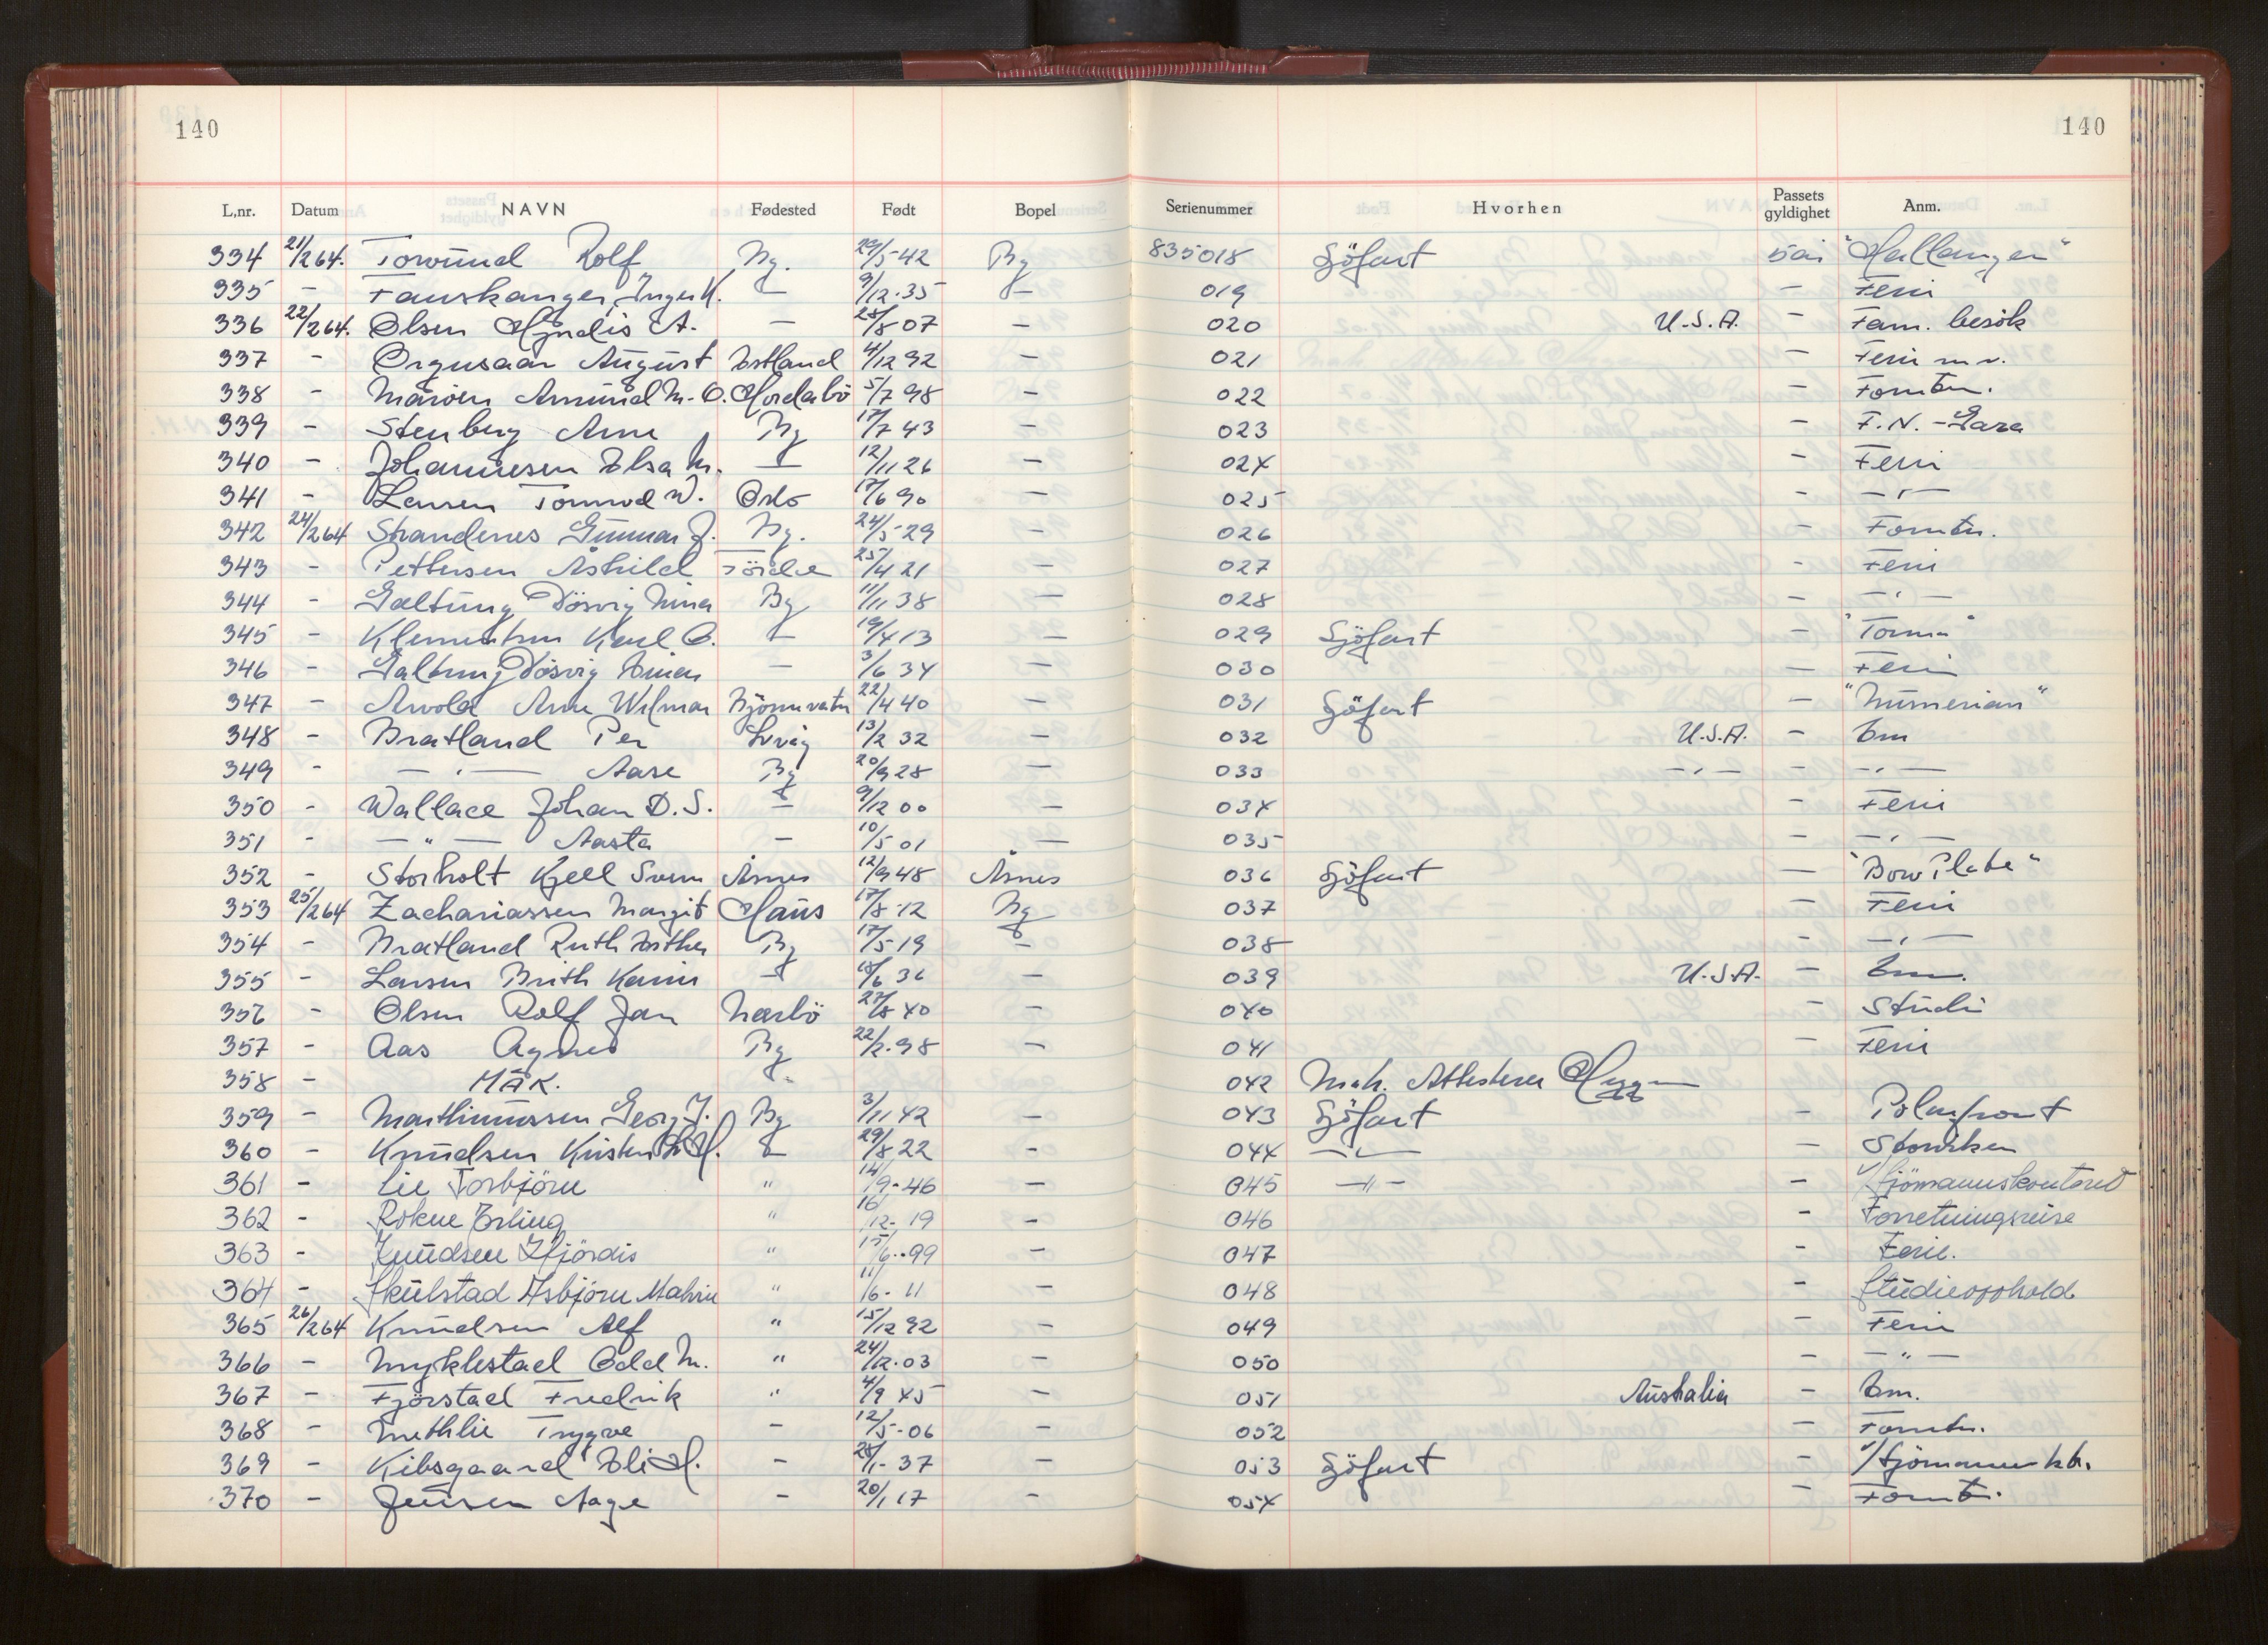 140 140
L,nr. Datum NAVN Fødested Født Bopel Serienummer Hvorhen Passets gyldighet Anm.
334 21/2 64. Torvund Rolf Bg. 29/5-42 Bg 835018 Sjöfart 5 år "Hallanger"
335 - Fauskanger, Inger K. — 9/12-35 — 019 — Feri
336 22/2 64. Olsen Hjördis A. — 28/8 07 — 020 U.S.A. — Fam. besök
337 - Orgusaar August Estland 4/12 92 — 021 — Feri m.v.
338 - Maröen Amund M. O. Hordabö 5/7 98 — 022 — Forretn.
339 - Stenberg Arne Bg 17/7 43 — 023 — F.N. - Gaza
340 - Johannesen Elsa M. — 12/11 26 — 024 — Feri
341 - Larsen Tormod W. Oslo 17/6 90 — 025 - — " —
342 24/2 64 Strandenes Gunnar J. Bg. 24/5-29 — 026 - Forretn.
343 - Pettersen Åshild Förde 25/4 21 — 027 - Feri
344 - Galtung Døsvig Nina Bg 11/11 38 — 028 - — " —
345 - Klementsen Karl O. — 19/4 13 — 029 Sjöfart — "Torma"
346 - Galtung Døsvig Einar — 3/6 34 — 030 — Feri
347 - Arvola Arne Wilmar Björnevatn 22/4 40 — 031 Sjöfart — "Numerian"
348 - Bratland Per 13/2 32 — 032 U.S.A. — Em
349 - — " — Aase Bg 20/9 28 — 033 — " — — — " —
350 - Wallace Johan D. S. — 9/12 00 — 034 - Feri
351 - — " — Aasta — 10/5 01 — 035 — — " —
352 - Storholt Kjell Svein Åsnes 12/9 48 Åsnes 036 Sjöfart — "Bow Plate"
353 25/2 64 Zachariassen Margit Haus 17/8-12 Bg 037 — Feri
354 - Bratland Ruth Esther Bg 17/5-19 — 038 - — " —
355 - Larsen Brith Karin — 18/6 36 — 039 U.S.A. — Em.
356 - Olsen Rolf Jan Nærbö 27/8 40 — 040 - Studi
357 - Aas Agnes Bg 22/2-98 — 041 — Feri
358 - MAK. 042 Mak. Attesteres
359 - Marthinussen Georg J. Bg 3/11 42 — 043 Sjöfart — Polarfront
360 - Knudsen Kristen H. — 29/8 22 - 044 — " — — Storviken
361 - Lie Torbjörn " 14/9-46 — 045 — " — - v/Sjömannskontoret
362 - Rokne Erling " 16/12-19 - 046 - Forretningsreise
363 - Knudsen Hjördis " 15/6-99 — 047 - Ferie.
364 - Skulstad Asbjörn Mahrin " 11/6-11 — 048 - Studieopphold
365 26/2 64 Knudsen Alf " 15/12 92 — 049 — Feri
366 - Myklestad Odd M. " 24/12-03 — 050 - — " —
367 - Fjörstad Fredrik " 4/9 45 — 051 Australia — Em.
368 - Methlie Trygve - 12/5-06 — 052 — Forretn.
369 - Kibsgaard Eli H. - 28/1-37 — 053 Sjöfart - v/Sjömannskt.
370 - Jensen Aage - 20/1 17 — 054 — Forretn.